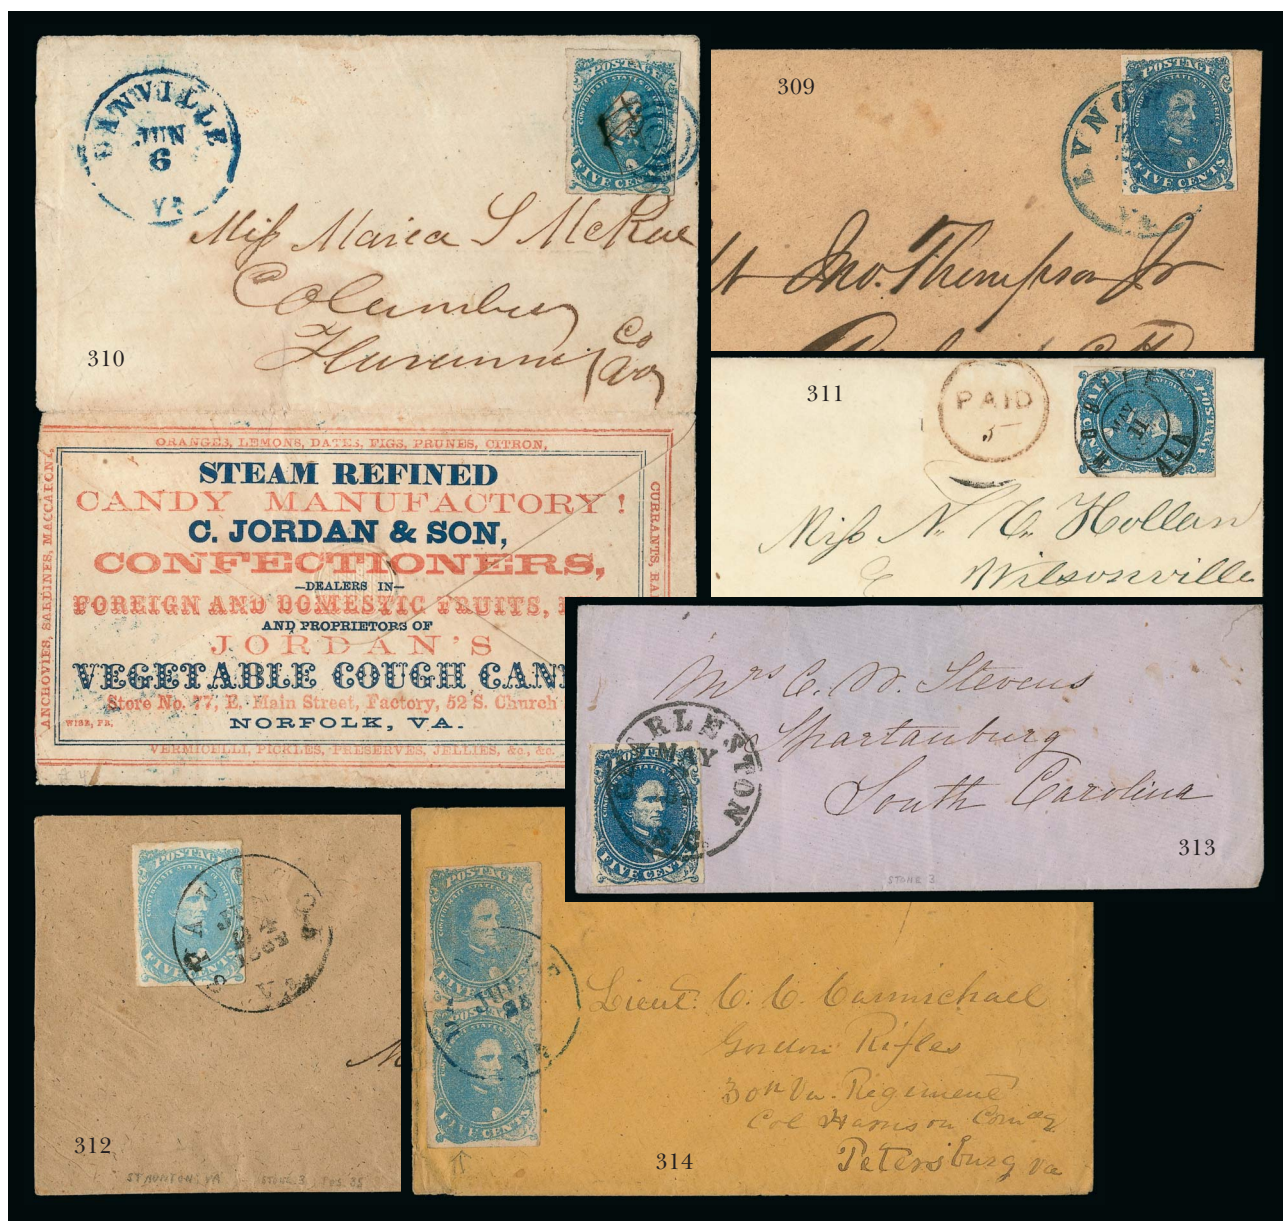 DANVILLE
JUN
6
VA
POSTAGE
CONFEDERATE STATES OF AMERICA
FIVE CENTS
Miss Maria S McRae
Columbus
Co
310
ORANGES, LEMONS, DATES, FIGS, PRUNES, CITRON,
ANCHOVIES, SARDINES, MACCARONI,
CURRANTS, RA
STEAM REFINED
CANDY MANUFACTORY!
C. JORDAN & SON,
CONFECTIONERS,
—DEALERS IN—
FOREIGN AND DOMESTIC FRUITS,
AND PROPRIETORS OF
JORDAN'S
VEGETABLE COUGH CAN
Store No. 77, E. Main Street, Factory, 52 S. Church
NORFOLK, VA.
WISE, PR.
VERMICELLI, PICKLES, PRESERVES, JELLIES, &c., &c.
309
POSTAGE
CONFEDERATE STATES OF AMERICA
FIVE CENTS
LYNC
VA
Jno. Thompson Jr
311
PAID
5
POSTAGE
11
ALA
Miss N. C. Hollan
Wilsonville
Mrs C. W. Stevens
Spartanburg
South Carolina
CHARLESTON
MAY
S.C.
POSTAGE
FIVE CENTS
313
STONE 3
POSTAGE
CONFEDERATE STATES OF AMERICA
FIVE CENTS
STAUNTON
JAN
24
VA
M
312
STAUNTON, VA STONE 3, POS. 35
POSTAGE
FIVE CENTS
POSTAGE
FIVE CENTS
VA
Lieut. C. C. Carmichael
Gordon Rifles
30th Va. Regiment
Col Harrison Comdg
Petersburg Va
314